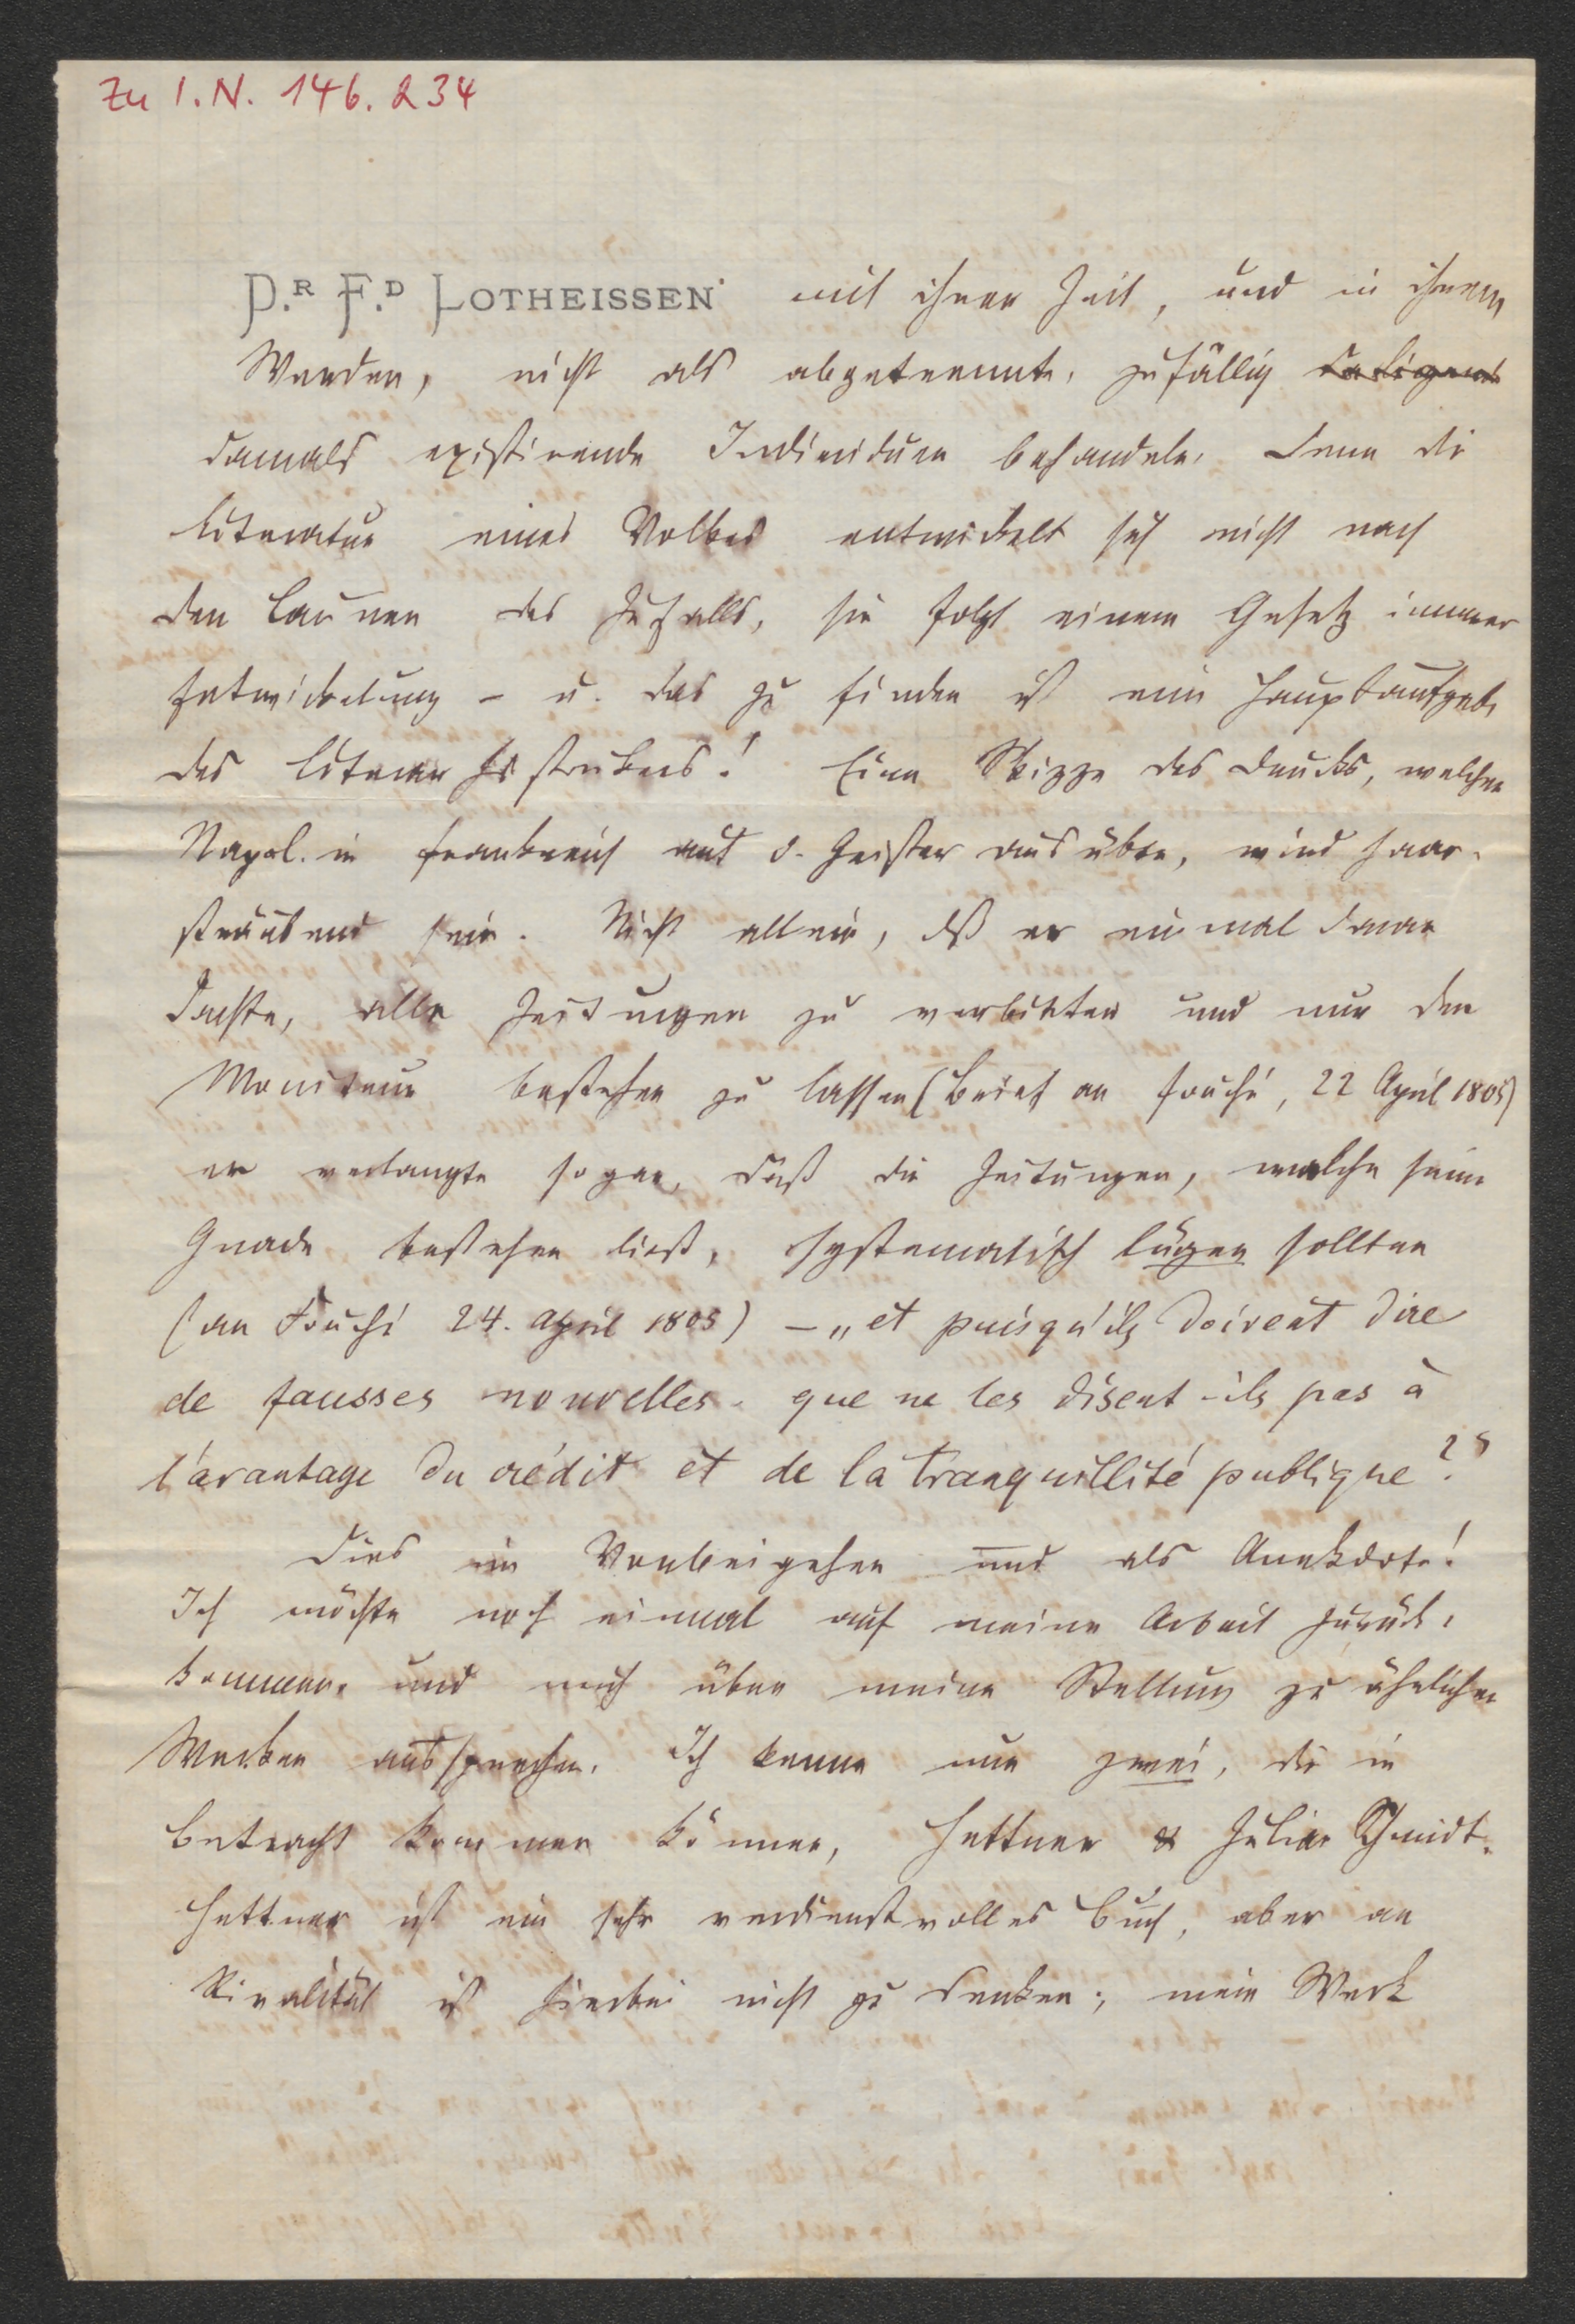 Zu I.N. 146.234
Dr. Fd. LOTHEISSEN mit ihrer Zeit, und in ihrem
Werden, nicht als abgetrennte, zufällig
damals existirende Individuen behandeln. Denn die
Literatur eines Volkes entwickelt sich nicht nach
den Launen des Zufalls, sie folgt einem Gesetz innerer
Entwickelung – u. das zu finden ist eine Hauptaufgabe
des Literarhistorikers! Eine Skizze des Drucks, welchen
Napol. in Frankreich auf d. Geister ausübte, wird haar-
sträubend sein. Nicht allein, dß er einmal daran
dachte, alle Zeitungen zu verbieten und nur den
Moniteur bestehen zu lassen (Brief an Fouché, 22 April 1805)
er verlangte sogar, daß die Zeitungen, welche seine
Gnade bestehen ließ, systematisch lügen sollten
(an Fouché 24. April 1805) – „et puisqu'ils doivent dire
de fausses nouvelles, que ne les disent-ils pas à
l'avantage du crédit et de la tranquillité publique?"
Dies im Vorbeigehen und als Anekdote!
Ich möchte noch einmal auf meine Arbeit zurück-
kommen und mich über meine Stellung zu ähnlichen
Werken aussprechen. Ich kenne nur zwei, die in
Betracht kommen können, Hettner & Julian Schmidt.
Hettner ist ein sehr verdienstvolles Buch, aber an
Rivalität ist hierbei nicht zu denken; mein Werk